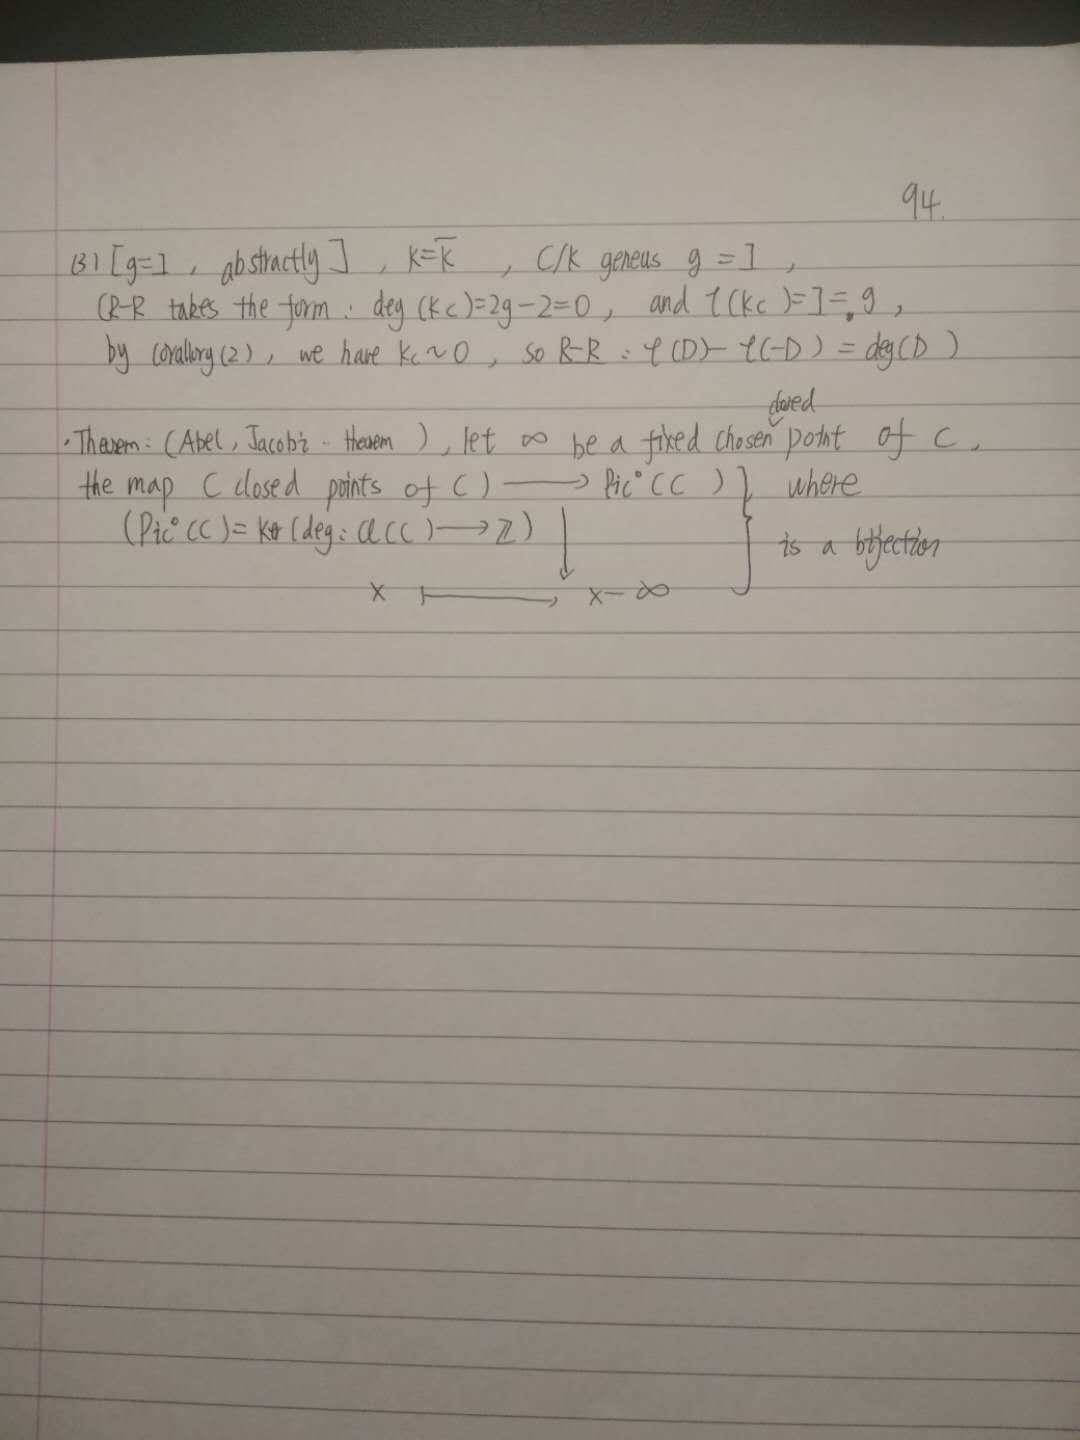 94.
(3) [g=1, abstractly], k=k̄, C/k geneus g=1,
(R-R takes the form: deg(Kc)=2g-2=0, and l(Kc)=1=g,
by Corollary(2), we have Kc~0, so R-R: l(D)-l(-D)=deg(D)
closed
·Theorem: (Abel, Jacobi - Theorem), let ∞ be a fixed chosen point of C,
the map (closed points of C) → Pic°(C)} where
(Pic°(C)=Ker(deg: Cl(C)→ℤ) ↓ is a bijection
x ↦ x-∞